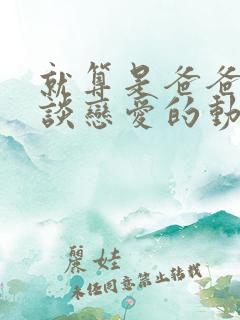 就算是爸爸
談戀愛的動
麗娃
未經同意禁止轉載